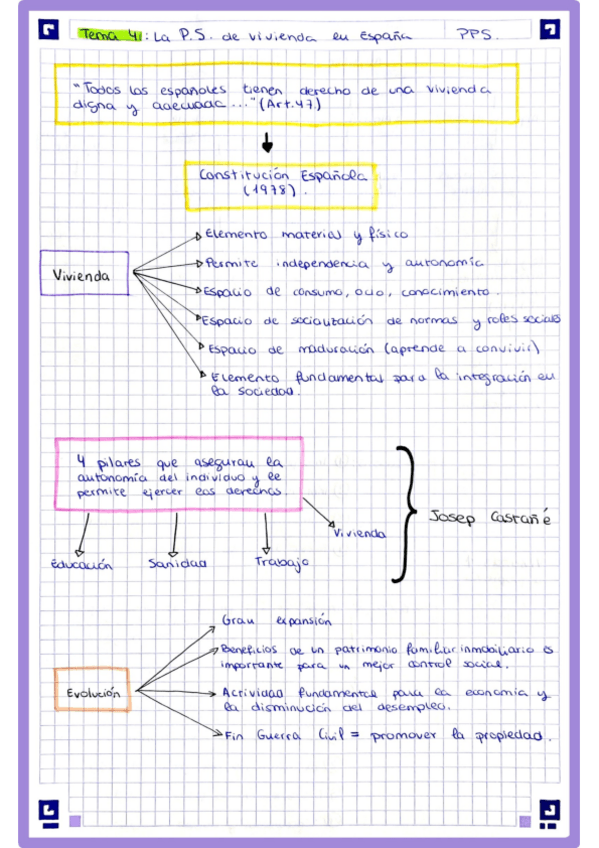 Tema 4: La P.S. de vivienda en España PPS.
"Todos los españoles tienen derecho de una vivienda
digna y adecuada ..." (Art.47)
Constitución Española
(1978).
Vivienda
Elemento material y físico
Permite independencia y autonomía
Espacio de consumo, ocio, conocimiento.
Espacio de socialización de normas y roles sociales
Espacio de maduración (aprende a convivir)
Elemento fundamental para la integración en
la sociedad.
4 pilares que aseguran la
autonomía del individuo y le
permite ejercer los derechos.
Educación
Sanidad
Trabajo
Vivienda
Josep Castañé
Evolución
Gran expansión
Beneficios de un patrimonio familiar inmobiliario es
importante para un mejor control social.
Actividad fundamental para la economía y
la disminución del desempleo.
Fin Guerra Civil = promover la propiedad.